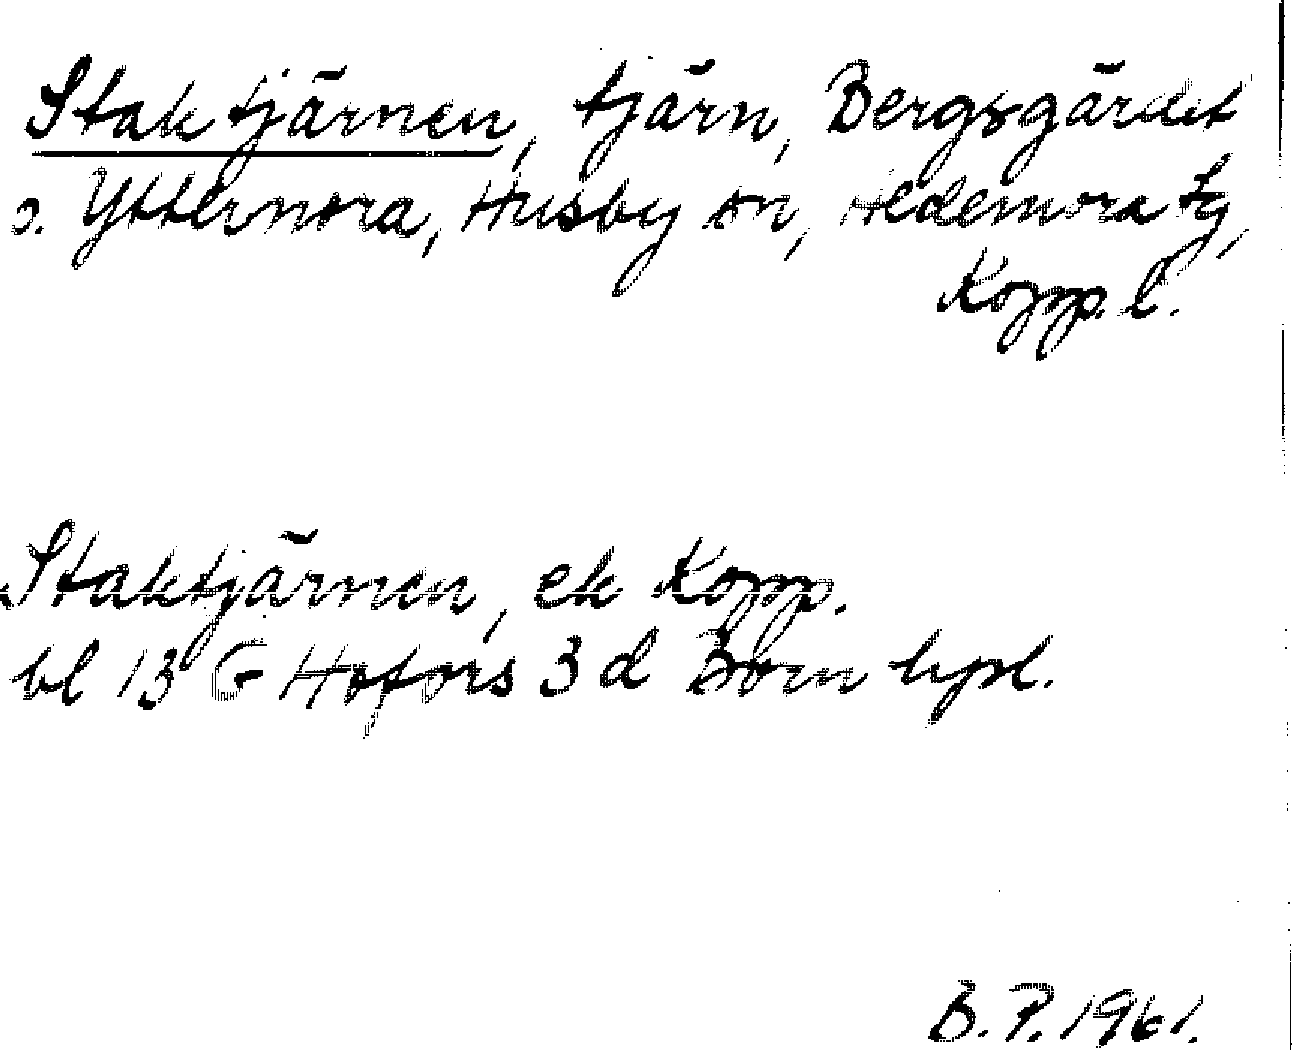 Staktjärnen, tjärn, Bergsgärdet
o. Ytternora, Husby sn, Hedemora tg,
Kopp. l.
Staktjärnen, ek Kopp.
bl 13 G Hofors 3 d Born hpl.
B. P. 1961.